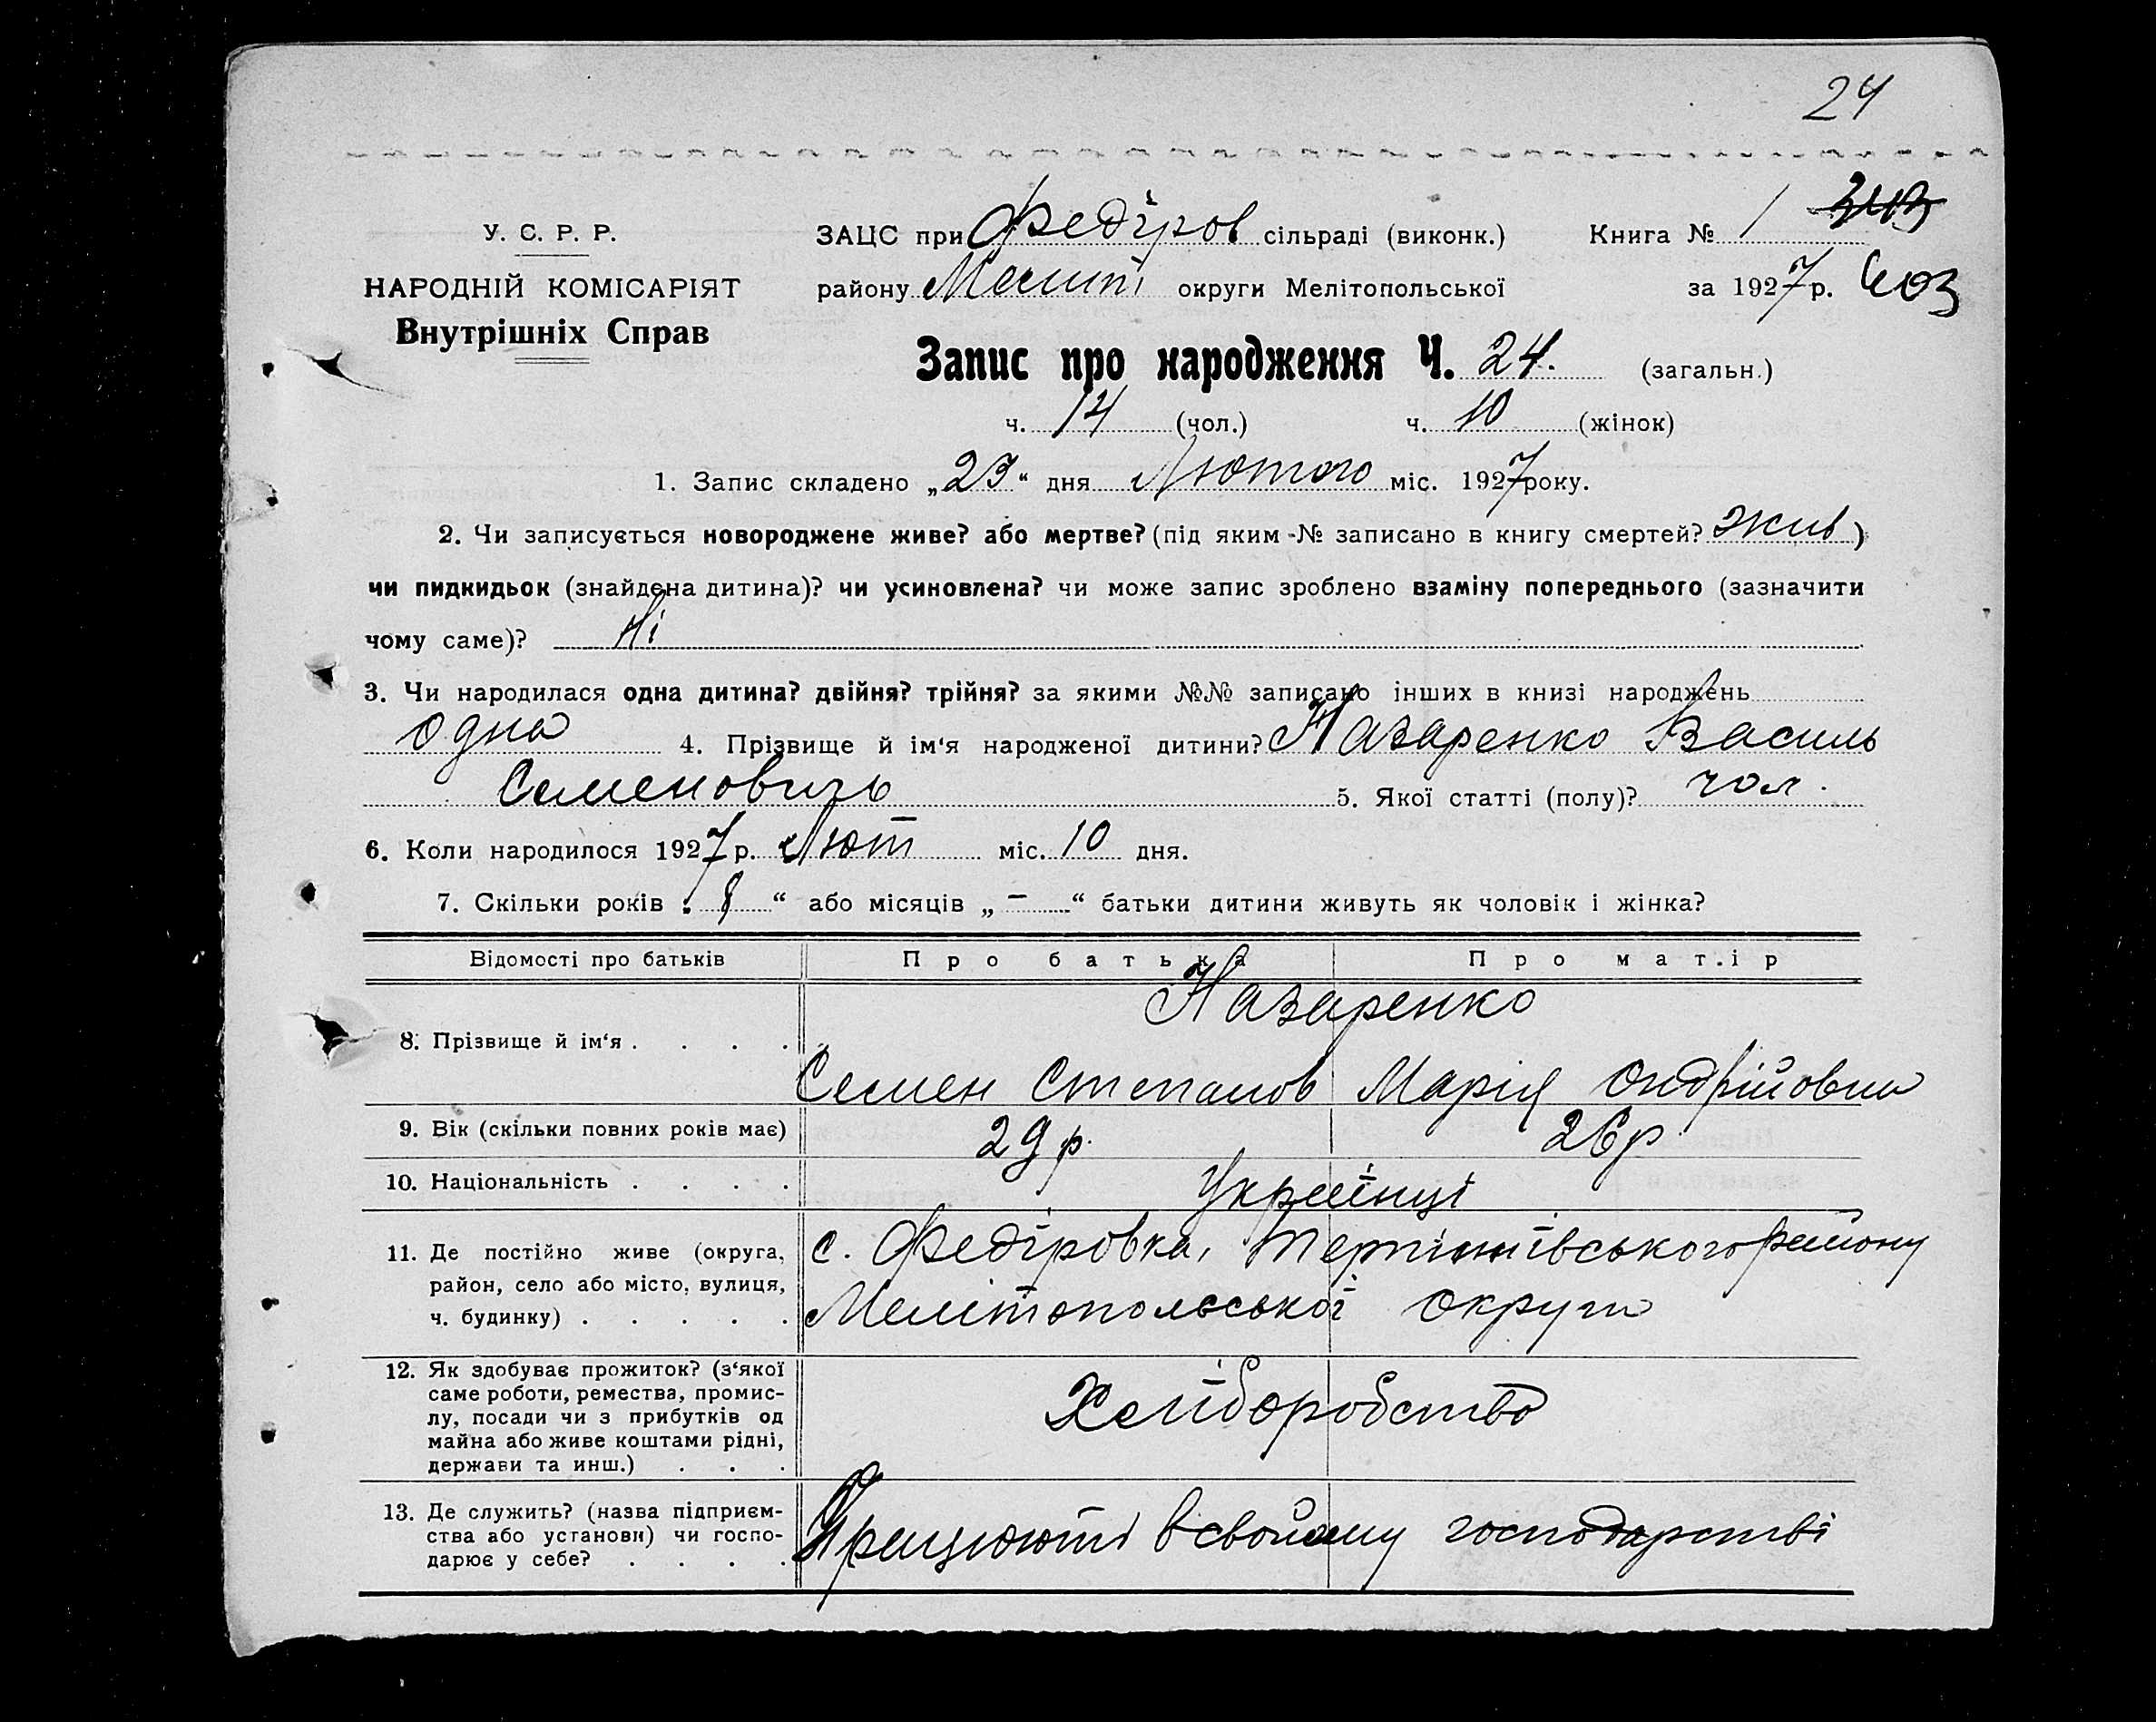 24
У. С. Р. Р.
НАРОДНІЙ КОМІСАРІЯТ
Внутрішніх Справ
ЗАЦС при Федіров сільраді (виконк.) Книга № 1
району округи Мелітопольської за 1927 р. 403
Запис про народження Ч. 24. (загальн.)
ч. 14 (чол.) ч. 10 (жінок)
1. Запис складено „23“ дня Лютого міс. 1927 року.
2. Чи записується новороджене живе? або мертве? (під яким № записано в книгу смертей? жив)
чи пидкидьок (знайдена дитина)? чи усиновлена? чи може запис зроблено взаміну попереднього (зазначити
чому саме)? Ні
3. Чи народилася одна дитина? двійня? трійня? за якими №№ записано інших в книзі народжень
одна 4. Прізвище й ім‘я народженої дитини? Назаренко Василь
Семенович 5. Якої статті (полу)? чол.
6. Коли народилося 1927 р. Лют міс. 10 дня.
7. Скільки років „8“ або місяців „–“ батьки дитини живуть як чоловік і жінка?
Відомості про батьків Про батька Про матір
Назаренко
8. Прізвище й ім‘я . . . .
Семен Степанов Марія Ондрійовна
9. Вік (скільки повних років має) 29 р. 26 р.
10. Національність . . . . Українці
11. Де постійно живе (округа, с. Федіровка, Терпіннівського району
район, село або місто, вулиця,
ч. будинку) . . . . . Мелітопольської округи
12. Як здобуває прожиток? (з‘якої
саме роботи, ремества, промис-
лу, посади чи з прибутків од Хліборобство
майна або живе коштами рідні,
держави та инш.) . . .
13. Де служить? (назва підприєм-
ства або установи) чи госпо- Працюють в свойому господарстві
дарює у себе? . . . .